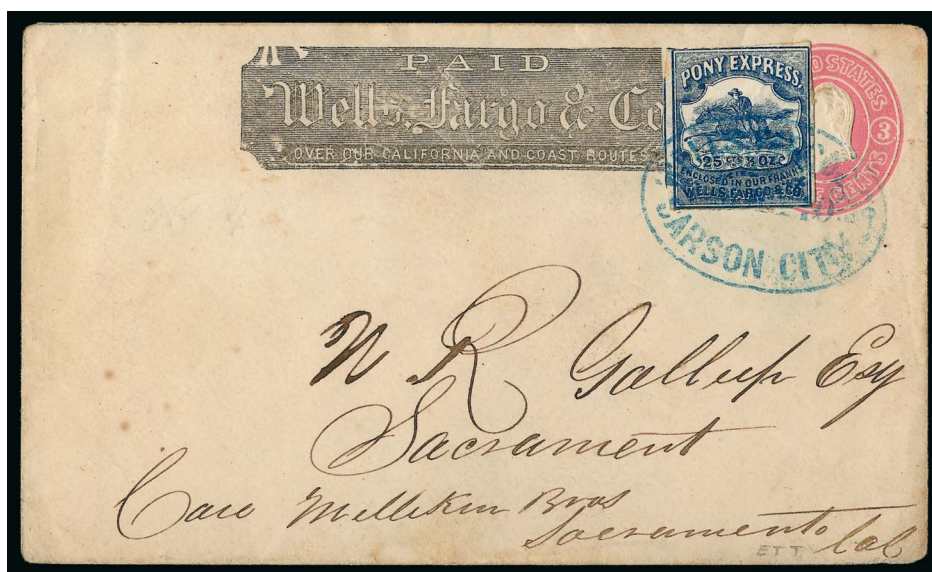 PAID
Wells, Fargo & Co
OVER OUR CALIFORNIA AND COAST ROUTES
PONY EXPRESS.
25 cts ½ OZ.
ENCLOSED IN OUR FRANKS
WELLS, FARGO & CO.
D STATES
3
E CENTS
CARSON CITY
N R Gallup Esq
Sacrament
Care Milliken Bros
Sacramento Cal
ETT